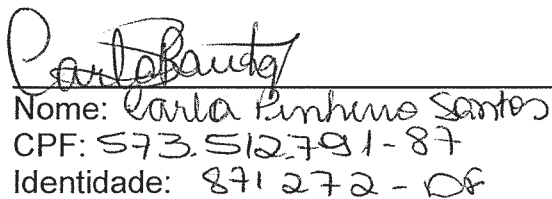 Carla Santos
Nome: Carla Pinheiro Santos
CPF: 573.512.791-87
Identidade: 871 272 - DF